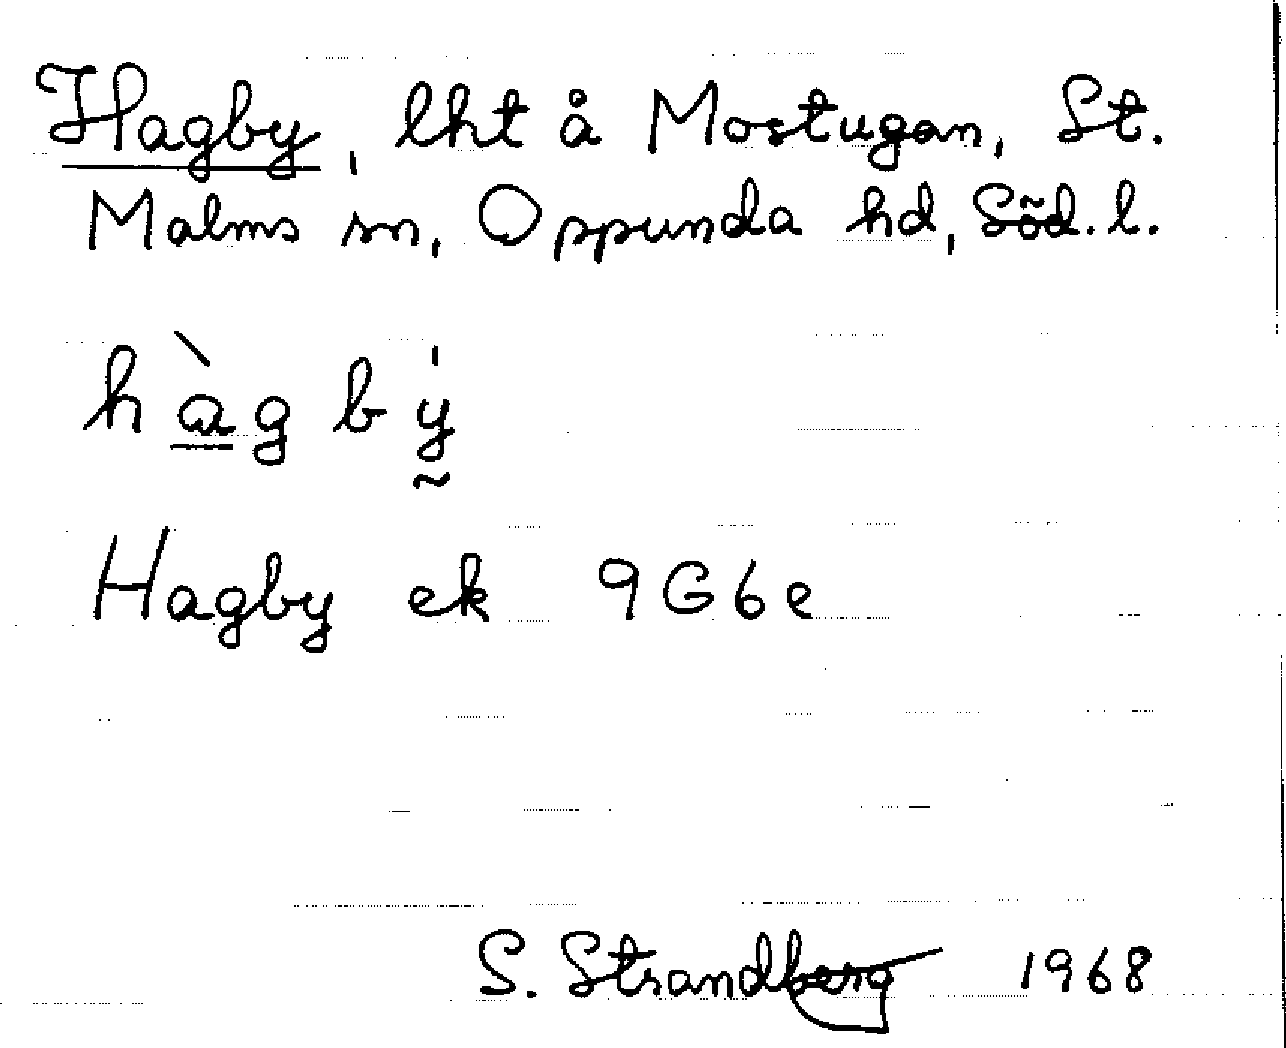 Hagby, lht å Mostugan, St.
Malms sn, Oppunda hd, Söd. l.
hàg bý̰
Hagby ek 9G6e
S. Strandberg 1968